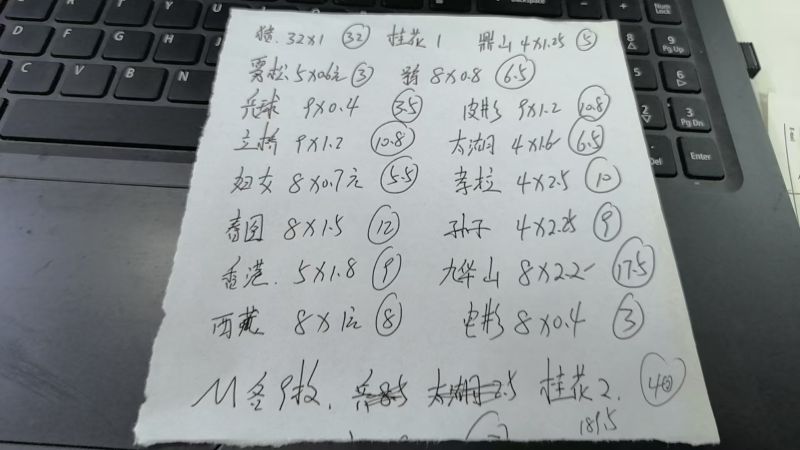 猪. 32×1 32 桂花1 鼎山 4×1.25 5
5×0.6元 3 8×0.8 6.5
乒球 9×0.4 3.5 皮影 9×1.2 10.8
立桥 9×1.2 10.8 太湖 4×1.6 6.5
妇女 8×0.7元 5.5 孝拉 4×2.5 10
8×1.5 12 孙子 4×2.25 9
香港. 5×1.8 9 九华山 8×2.2 17.5
西藏 8×1元 8 电影 8×0.4 3
9枚. 太湖 2.5 桂花2.
189.5
Backspace
Num Lock
9 PgUp
6
3 PgDn
Enter
Del